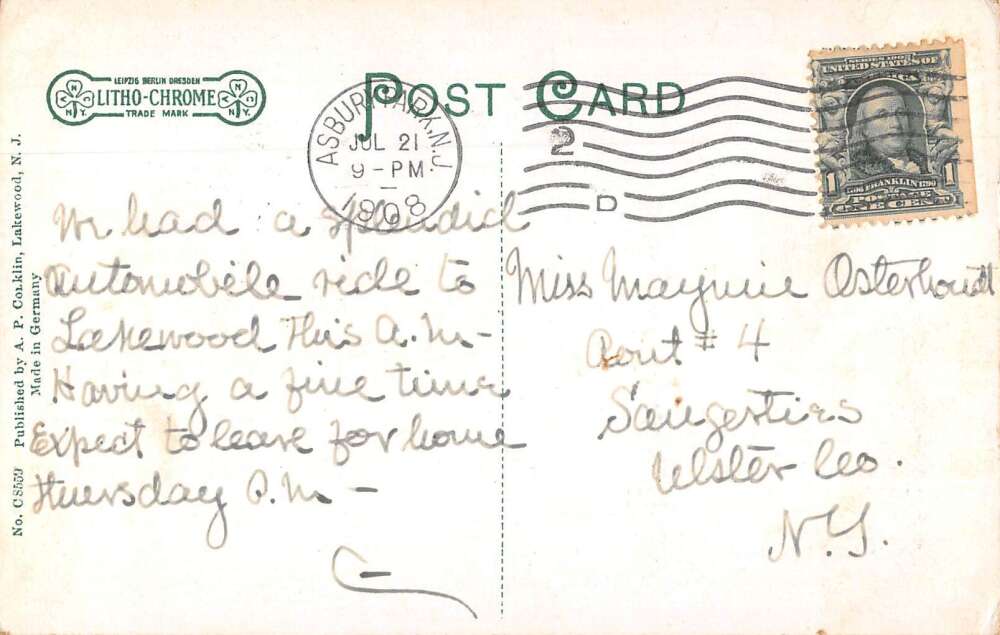 LEIPZIG BERLIN DRESDEN
LITHO-CHROME
TRADE MARK
N.Y.
N.Y.
POST CARD
ASBURY PARK, N.J.
JUL 21
9 - PM
1908
2
D
SERIES 1902
UNITED STATES OF
1706 FRANKLIN 1790
1 POSTAGE 1
ONE CENT
We had a splendid
automobile ride to
Lakewood this A.M-
Having a fine time
Expect to leave for home
Thuersday P.M -
C-
Miss Mayme Osterhoudt
Rout #4
Saugerties
Ulster Co.
N.Y.
No. C8559 Published by A. P. Conklin, Lakewood, N. J.
Made in Germany